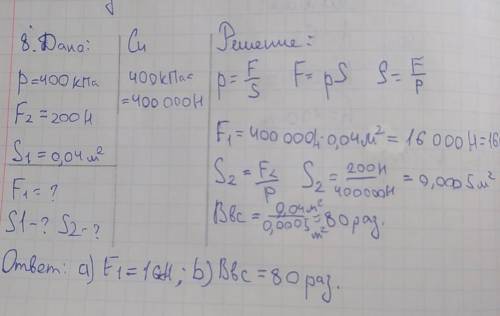 8. Дано:
p=400кПа
F₂=200Н
S₁=0,04м²
F₁=?
S1-? S2-?
Си
400кПа=
=400 000Н
Решение:
p=F/S F=pS S=F/p
F₁=400 000Н·0,04м²=16 000Н=16
S₂=F₂/p S₂=200Н/400000Н=0,0005м²
Ввс=0,04м²/0,0005м²=80 раз.
Ответ: а) F₁=16Н; b) Ввс=80 раз.